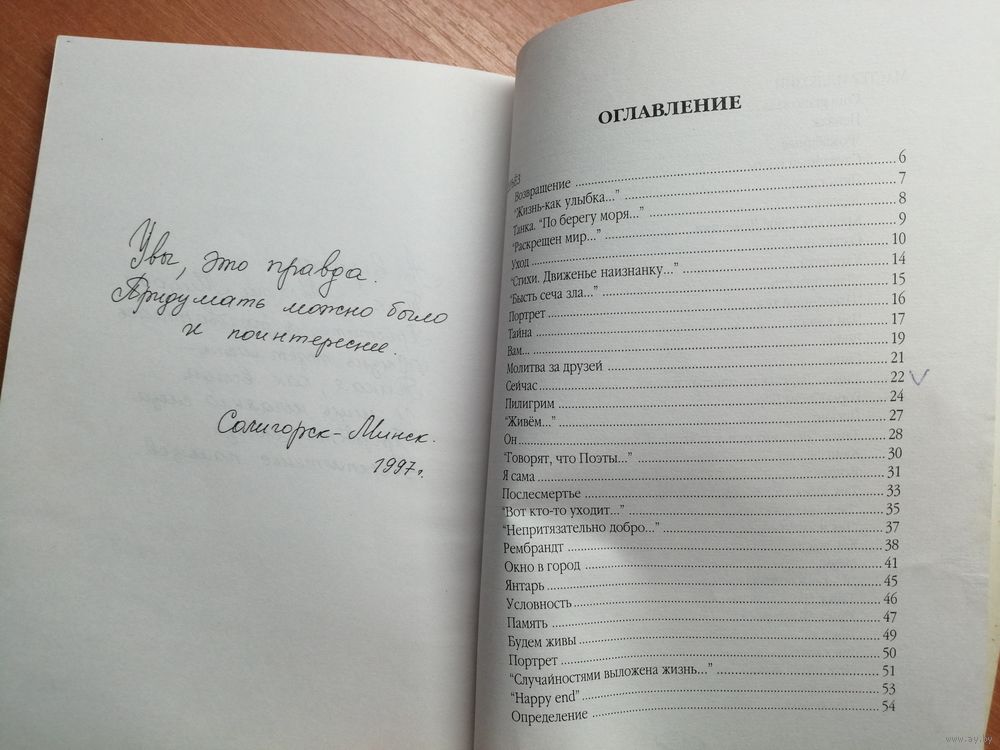 Увы, это правда.
Придумать можно было
и поинтереснее.
Солигорск-Минск.
1997г.
ОГЛАВЛЕНИЕ
Возвращение ........ 6
"Жизнь-как улыбка..." ........ 7
Танка. "По берегу моря..." ........ 8
"Раскрещен мир..." ........ 9
Уход ........ 10
"Стихи. Движенье наизнанку..." ........ 14
"Бысть сеча зла..." ........ 15
Портрет ........ 16
Тайна ........ 17
Вам... ........ 19
Молитва за друзей ........ 21
Сейчас ........ 22
Пилигрим ........ 24
"Живём..." ........ 27
Он ........ 28
"Говорят, что Поэты..." ........ 30
Я сама ........ 31
Послесмертье ........ 33
"Вот кто-то уходит..." ........ 35
"Непритязательно добро..." ........ 37
Рембрандт ........ 38
Окно в город ........ 41
Янтарь ........ 45
Условность ........ 46
Память ........ 47
Будем живы ........ 49
Портрет ........ 50
"Случайностями выложена жизнь..." ........ 51
"Happy end" ........ 53
Определение ........ 54
www.ay.by